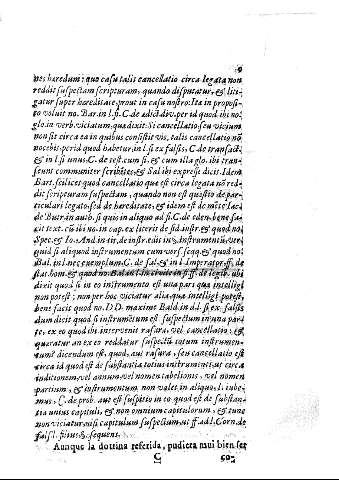 9
nes haredum: quo casu talis cancellatio circa legata non
reddit suspectam scripturam, quando disputatur, & liti-
gatur super hereditate, prout in casu nostro: Ita in proposi-
to voluit no. Bar. in l. si. C. de adict. div. per id quod ibi no.
glo. in verb. viciatum, quæ dixit. Si cancellatio seu vicium
non sit circa ea in quibus consistit vis, talis cancellatio nõ
nocebit. per id quod habetur, in l. si ex falsis, C. de transact.
& in l. si unus. C. de test. cum si. & cum illa glo. ibi tran-
seunt communiter scribẽtes, & Sal ibi expresè dicit. Idem
Bart. scilicet quod cancellatio que est circa legata nõ red-
dit scripturam suspectam, quando non est questio de par-
ticulari legato, sed de hereditate, & idem est de mẽte Iaco.
de Butr. in auth. si quis in aliquo
cit text. cũ ibi no. in cap. ex literis de fid. instr. & quod no.
Spec. & Io. And. in tit. de instr. edit.
si aliquod instrumentum cum vers. seqq. & quod no.
Bal. in l. nec exemplum. C. de fal. & in l. Imperator. ff. de
stat. hom. & quod no. Bal. in l. in civile in si. ff. de legib. ubi
dixit quod si in eo instrumento est una pars quæ intelligi
non potest; non per hoc viciatur alia quæ intelligi potest,
bene facit quod no. D.D. maxime Bald. in d. l. si ex falsis
dum dicit quod si instrumẽtum est suspectum in una par-
te, ex eo quod ibi intervenit rasura, vel cancellatio; &
quæratur an ex eo reddatur suspectũ totum instrumen-
tum? dicendum est, quod, aut rasura, seu cancellatio est
circa id quod est de substantia totius instrumenti, ut circa
inditionem, vel annum, vel nomen tabelionis, vel nomen
partium, & instrumentum non valet in aliquo, l. iube-
mus, C. de prob. aut est suspitio in eo quod est de substan-
tia unius capituli, & non omnium capitulorum, & tunc
non viciatur nisi capitulum suspectum, ut ff. ad l. Corn. de
falsi. l. filius & sequent.
Aunque la dottrina referida, pudiera mui bien ser
C con-